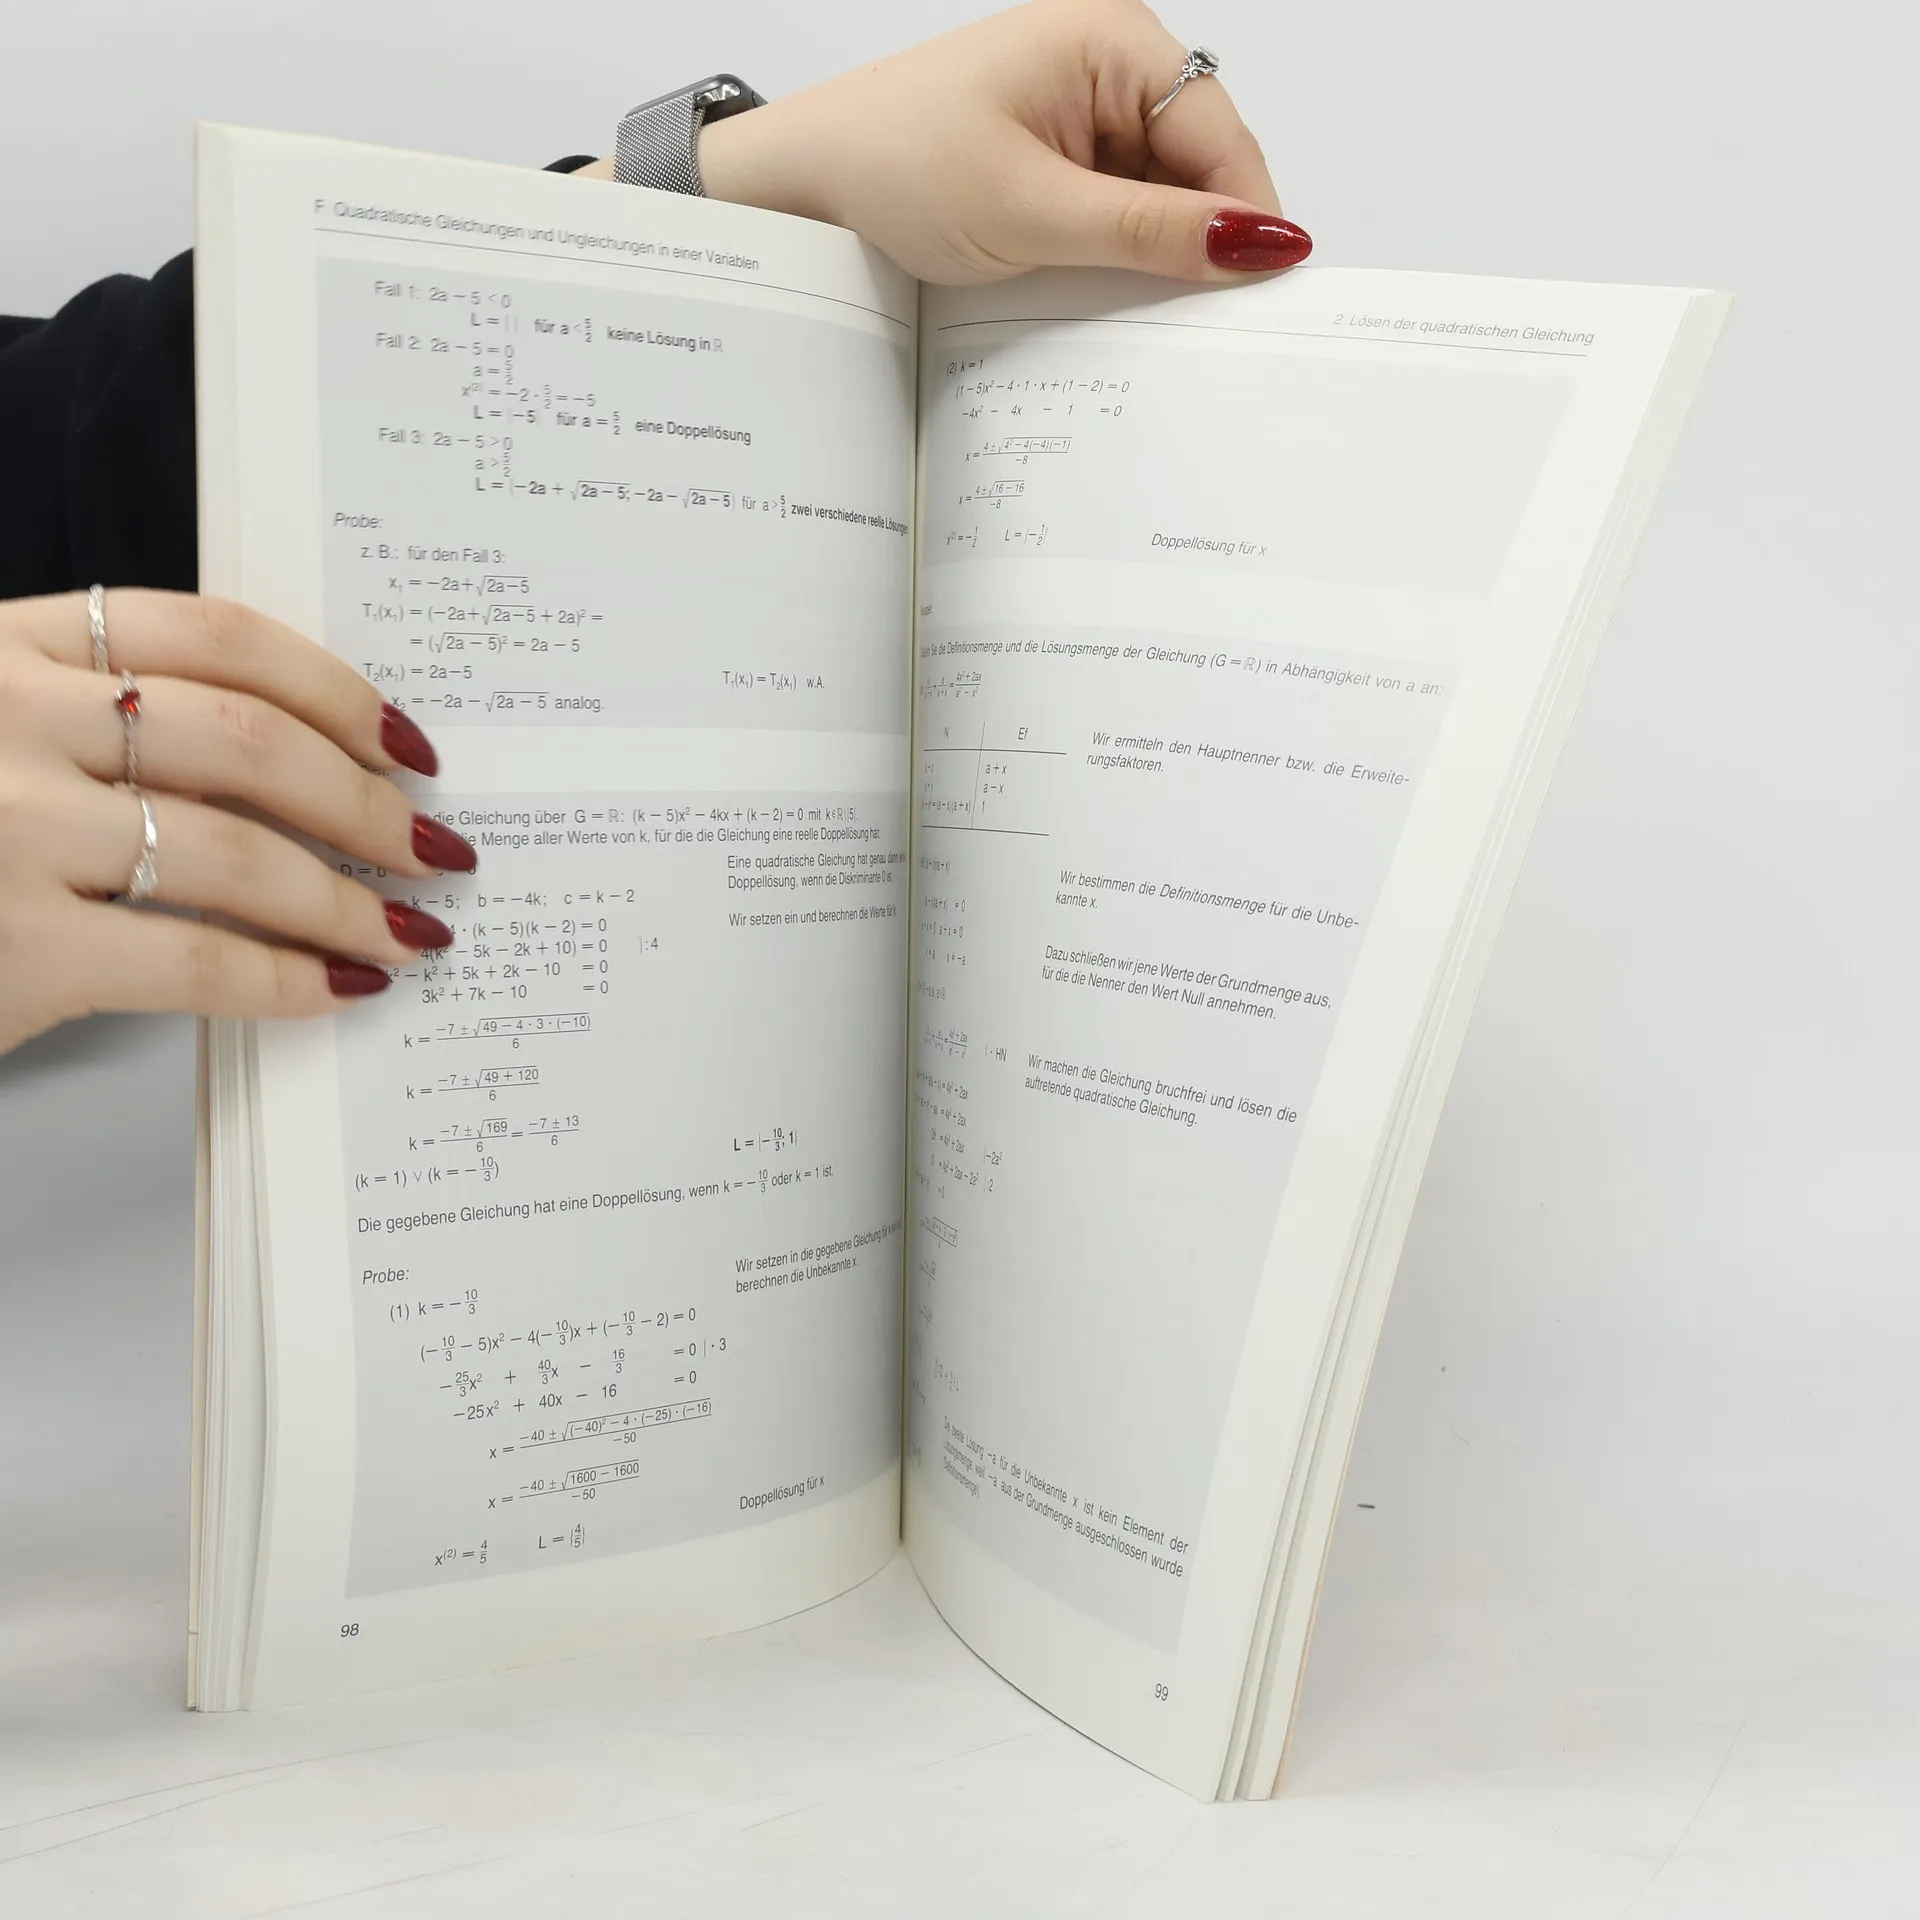 F Quadratische Gleichungen und Ungleichungen in einer Variablen
Fall 1: 2a − 5 < 0
L = { } für a < 5/2 keine Lösung in ℝ
Fall 2: 2a − 5 = 0
a = 5/2
x⁽²⁾ = −2 · 5/2 = −5
L = {−5} für a = 5/2 eine Doppellösung
Fall 3: 2a − 5 > 0
a > 5/2
L = {−2a + √(2a − 5); −2a − √(2a − 5)} für a > 5/2 zwei verschiedene reelle Lösungen
Probe:
z. B.: für den Fall 3:
x₁ = −2a + √(2a−5)
T₁(x₁) = (−2a + √(2a−5) + 2a)² =
= (√(2a − 5))² = 2a − 5
T₂(x₁) = 2a−5 T₁(x₁) = T₂(x₁) w.A.
x₂ = −2a − √(2a − 5) analog.
die Gleichung über G = ℝ: (k − 5)x² − 4kx + (k − 2) = 0 mit k∈ℝ\{5}.
die Menge aller Werte von k, für die die Gleichung eine reelle Doppellösung hat.
Eine quadratische Gleichung hat genau dann
Doppellösung, wenn die Diskriminante 0 ist.
k − 5; b = −4k; c = k − 2
Wir setzen ein und berechnen die Werte für k
4 · (k − 5)(k − 2) = 0
4(k² − 5k − 2k + 10) = 0 |:4
k² − k² + 5k + 2k − 10 = 0
3k² + 7k − 10 = 0
k = (−7 ± √(49 − 4 · 3 · (−10)))/6
k = (−7 ± √(49 + 120))/6
k = (−7 ± √169)/6 = (−7 ± 13)/6
(k = 1) ∨ (k = −10/3) L = {−10/3; 1}
Die gegebene Gleichung hat eine Doppellösung, wenn k = −10/3 oder k = 1 ist.
Probe:
Wir setzen in die gegebene Gleichung für k
berechnen die Unbekannte x.
(1) k = −10/3
(−10/3 − 5)x² − 4(−10/3)x + (−10/3 − 2) = 0
−25/3x² + 40/3x − 16/3 = 0 | · 3
−25x² + 40x − 16 = 0
x = (−40 ± √((−40)² − 4 · (−25) · (−16)))/−50
x = (−40 ± √(1600 − 1600))/−50
x⁽²⁾ = 4/5 L = {4/5} Doppellösung für x
98
2 Lösen der quadratischen Gleichung
(2) k = 1
(1 − 5)x² − 4 · 1 · x + (1 − 2) = 0
−4x² − 4x − 1 = 0
x = (4 ± √(4² − 4(−4)(−1)))/−8
x = (4 ± √(16 − 16))/−8
x⁽²⁾ = −1/2 L = {−1/2} Doppellösung für x
Sie die Definitionsmenge und die Lösungsmenge der Gleichung (G = ℝ) in Abhängigkeit von a an:
N Ef
a + x
a − x
(a − x)(a + x) 1
Wir ermitteln den Hauptnenner bzw. die Erweite-
rungsfaktoren.
Wir bestimmen die Definitionsmenge für die Unbe-
kannte x.
Dazu schließen wir jene Werte der Grundmenge aus,
für die die Nenner den Wert Null annehmen.
| · HN
Wir machen die Gleichung bruchfrei und lösen die
auftretende quadratische Gleichung.
|−2a²
|:2
Die zweite Lösung −a für die Unbekannte x ist kein Element der
Lösungsmenge, weil −a aus der Grundmenge ausgeschlossen wurde
(Definitionsmenge).
99